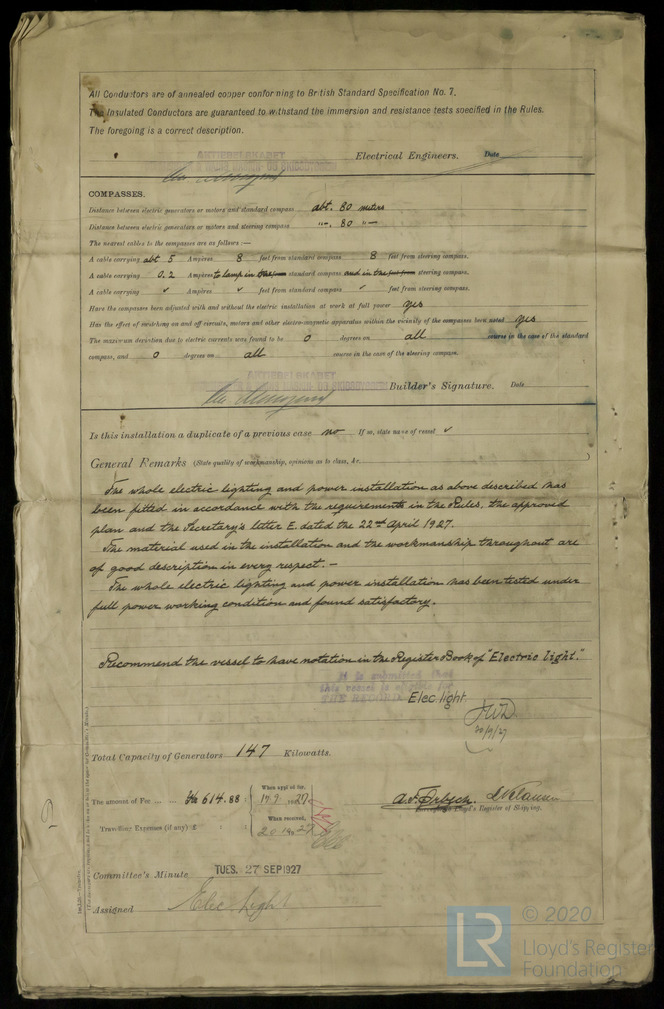 All Conductors are of annealed copper conforming to British Standard Specification No. 7.
The Insulated Conductors are guaranteed to withstand the immersion and resistance tests specified in the Rules.
The foregoing is a correct description.
AKTIESELSKABET
Electrical Engineers. Date
COMPASSES.
Distance between electric generators or motors and standard compass abt. 80 meters
Distance between electric generators or motors and steering compass "-. 80 "-
The nearest cables to the compasses are as follows :—
A cable carrying abt 5 Ampères 8 feet from standard compass 8 feet from steering compass.
A cable carrying 0.2 Ampères to lamp in the standard compass and in the steering compass.
A cable carrying ✓ Ampères ✓ feet from standard compass ✓ feet from steering compass.
Have the compasses been adjusted with and without the electric installation at work at full power yes
Has the effect of switching on and off circuits, motors and other electro-magnetic apparatus within the vicinity of the compasses been noted yes
The maximum deviation due to electric currents was found to be 0 degrees on all course in the case of the standard
compass, and 0 degrees on all course in the case of the steering compass.
AKTIESELSKABET
Builder's Signature. Date
Is this installation a duplicate of a previous case no If so, state name of vessel ✓
General Remarks (State quality of workmanship, opinions as to class, &c.)
The whole electric lighting and power installation as above described has
been fitted in accordance with the requirements in the Rules, the approved
plan and the Secretary's letter E. dated the 22nd April 1927.
The material used in the installation and the workmanship throughout are
of good description in every respect. —
The whole electric lighting and power installation has been tested under
full power working condition and found satisfactory.
Recommend the vessel to have notation in the Register Book of "Electric light."
It is submitted that
this vessel is eligible for
THE RECORD Elec. light
20/9/27
Total Capacity of Generators 147 Kilowatts.
The amount of Fee ... ... 614.88
When applied for,
17.9 1927
Travelling Expenses (if any) £
When received,
Lloyd's Register of Shipping.
Committee's Minute TUES. 27 SEP 1927
Assigned Elec. Light
© 2020
LR Lloyd's Register
Foundation